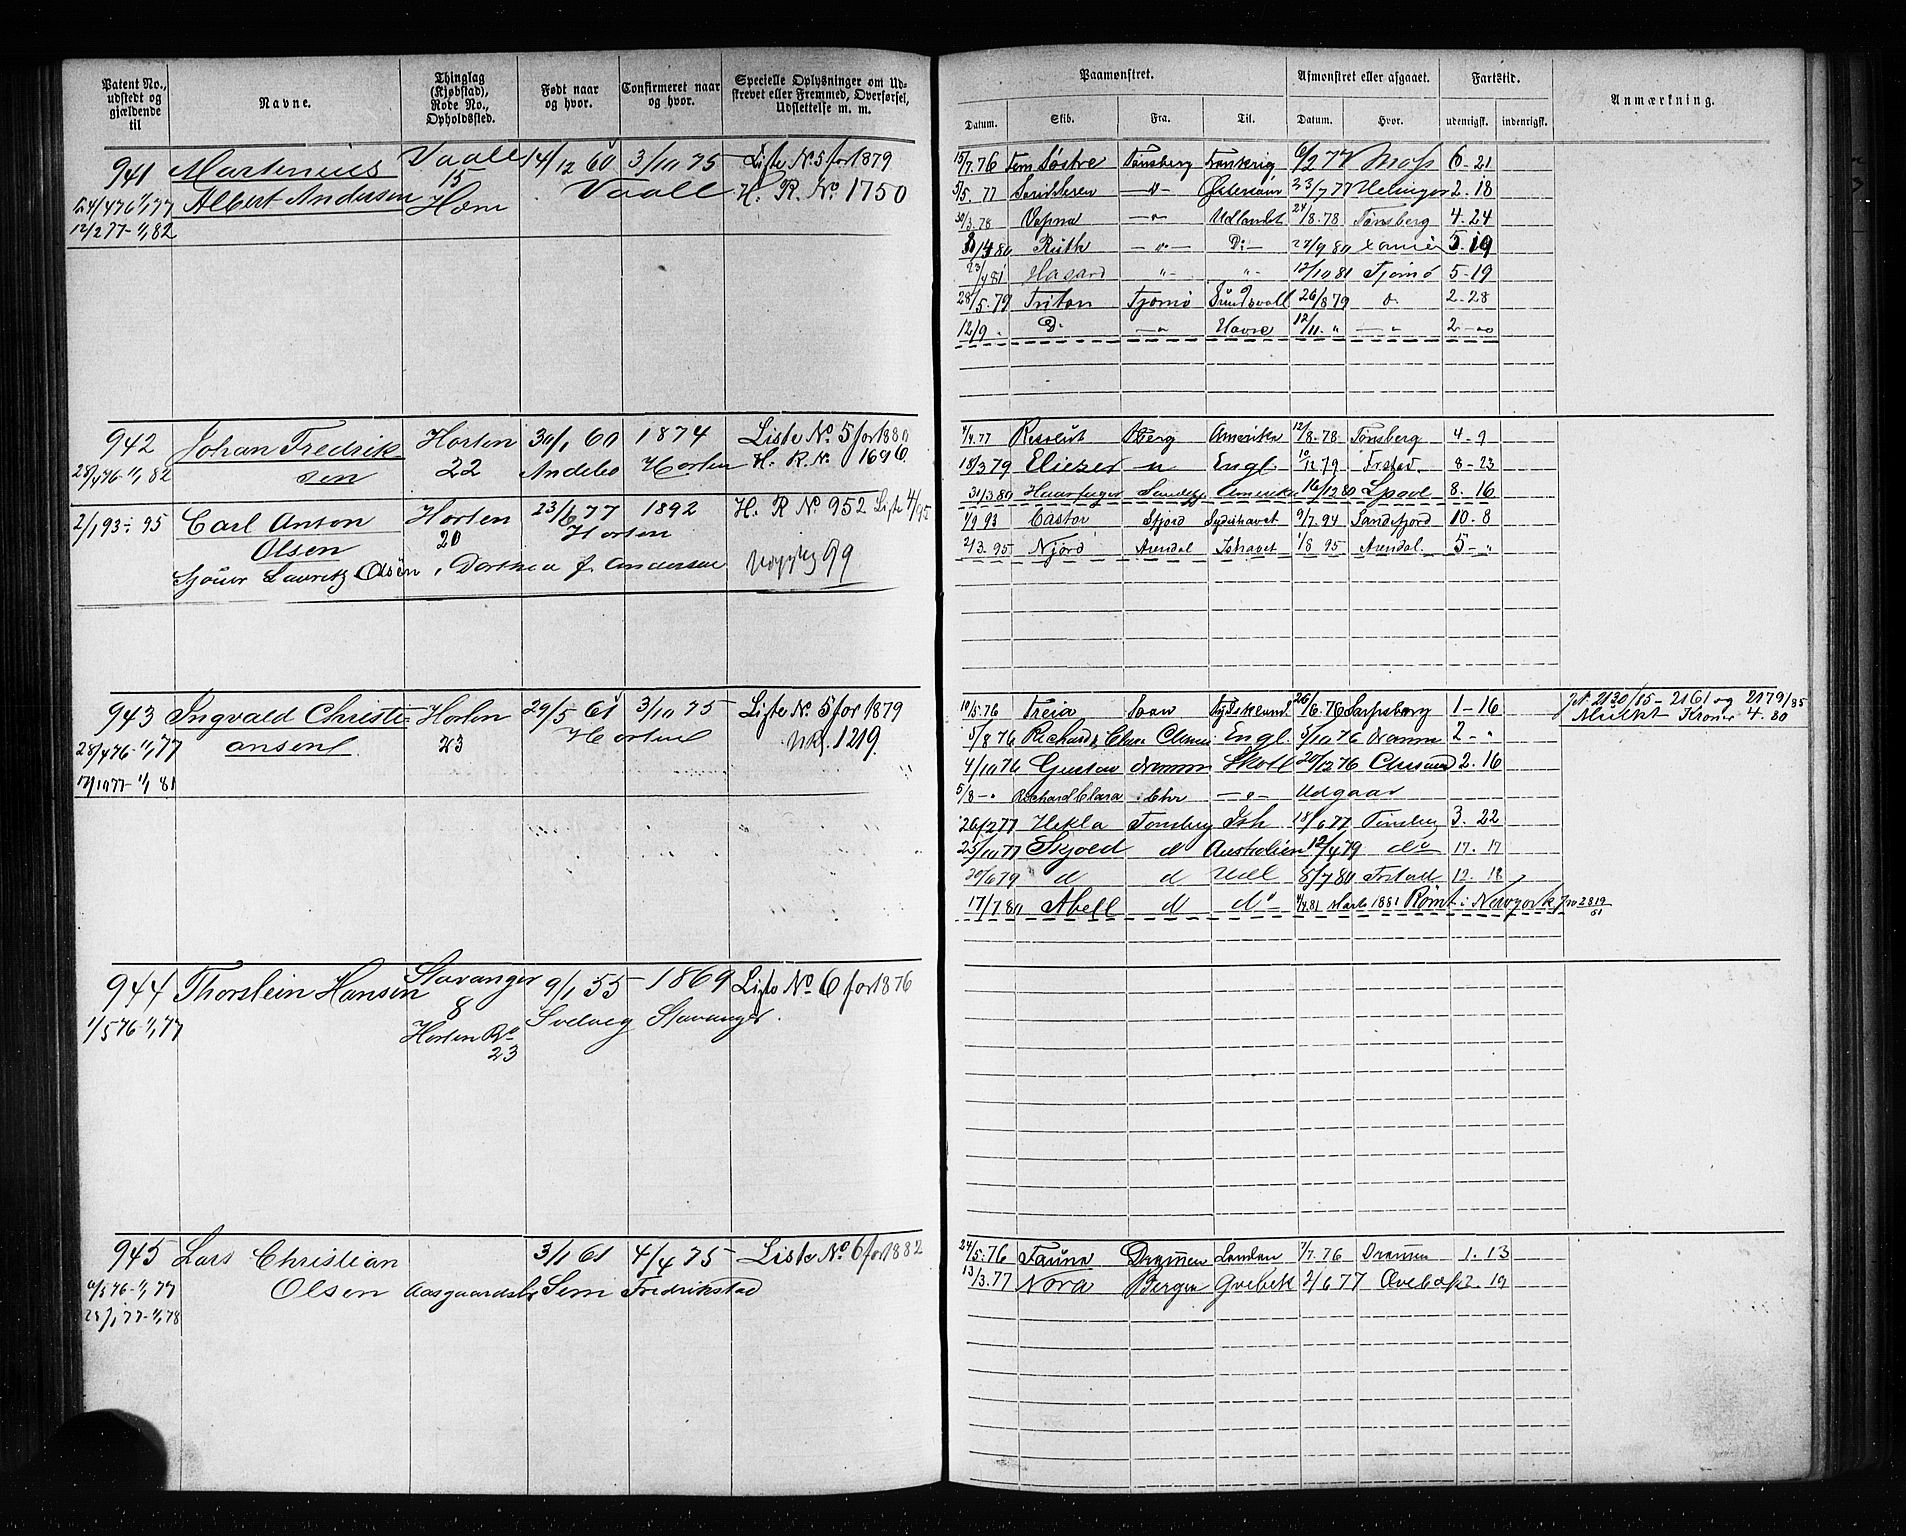 Patent No., udstedt og gjældende til
Navne.
Thinglag (Kjøbstad), Rode No., Opholdssted.
Født naar og hvor.
Confirmeret naar og hvor.
Specielle Oplysninger om Udskrevet eller Fremmed, Overførsel, Udslettelse m. m.
Paamønstret.
Afmønstret eller afgaaet.
Fartstid.
Anmærkning.
Datum.
Skib.
Fra.
Til.
Datum.
Hvor.
udenrigsk.
indenrigsk.
941 Martinius Vaale 14/12 60 3/10 75 Liste No 5 for 1879
Albert Andersen 15 Vaale H. R. No 1750
24/4 76 1/1 77 Hem
12/2 77 - 1/1 82
15/7. 76 Fem Søstre Tønsberg Frankrig 6/2 77 Moss 6-21
5/5. 77 2. 18
30/3 78 Udlandet 24/8. 78 Tønsberg 4-24
Ruth D: 5. 19
23/4 81 Hasard 12/10 81 Tjømø 5-19
28/5. 79 Triton Tjømø Sundsvall 26/8 79 2-28
12/9 D: Havre 12/11 2
942 Johan Fredrik Horten 30/1 60 1874 Liste No 5 for 1880
sen 22 Andebo Horten H. R. No 1696
28/4 76 - 1/1 82
1/4. 77 Resolut Tberg Amerika 12/8. 78 Tønsberg 4-9
15/3 79 Eliezer Engl. 10/12 79 Frstad. 8-23
31/3 80 Haarfager Sandefj Amerika 16/12 80 Lpool 8. 16
2/1 93 - 95 Carl Anton Horten 23/6 77 1892 H. R No 952 Liste 4/95
Olsen 20 Horten
Sjøm Lauritz Olsen, Dorthea J. Andersen 99
1/9 93 Castor Sfjord Sydishavet 9/7. 94 Sandefjord 10. 8
2/3. 95 Njord Arendal Ishavet 1/8 95 Arendal. 5
943 Ingvald Christi- Horten 29/5 61 3/10 75 Liste No. 5 for 1879
ansen 23 Horten 1219.
28/4 76 - 1/1 77
17/10 77 - 1/1 81
10/5. 76 Freia Tydskland 26/6. 76 Sarpsborg 1-16 2130/85 - 2161 og 2179/85
Mulkt Kroner 4. 80
5/8 76 Richard & Clara Engl. 3/10 76 Dramn 2
4/10 76 Gustav Dramm Skotl 20/12 76 2. 16
5/8 Richard Clara Udgaar
26/2 77 Hekla Tønsberg Ish 18/6 77 Tønsberg 3. 22
25/10 77 Skjold d Australien 12/4 79 do 17. 17
20/6 79 d d Udl 8/7 80 Frstad 12. 18
17/7 80 Abell d do Marts 1881 Rømt i Newyork 2819/81
944 Thorstein Hansen Stavanger 9/1 55 1869 Liste No 6 for 1876
8 Svelvig Stavanger.
1/5 76 - 1/1 77 Horten Ro
23
945 Lars Christian 3/1 61 4/4 75 Liste No 6 for 1882
Olsen Aasgaardstr Sem Fredrikstad
/5 76 - 1/1 77
28/1 77 - 1/1 78
24/5. 76 Fauna Drammen London 7/7. 76 Drammen 1. 13
13/3. 77 Nora Bergen 2/6 77 2. 19